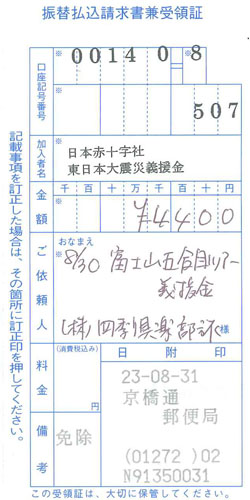 振替払込請求書兼受領証
口座記号番号
※
00140 8
※
507
加入者名
日本赤十字社
東日本大震災義援金
金額
千百十万千百十円
※
¥4400
ご依頼人
おなまえ
※
8/30 富士山五合目ツアー
義援金
(株)四季倶楽部
様
料金
(消費税込み)
円
日附印
23-08-31
京橋通
郵便局
備考
免除
(01272)02
N91350031
記載事項を訂正した場合は、その箇所に訂正印を押してください。
この受領証は、大切に保管してください。